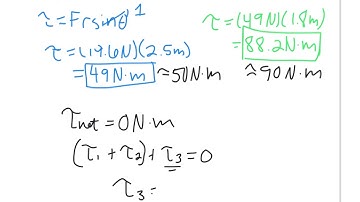 τ = Frsinθ 1
τ = (19.6N)(2.5m)
= 49N·m ≈ 50N·m
τ = (49N)(1.8m)
= 88.2N·m
≈ 90N·m
τnet = 0N·m
(τ1 + τ2) + τ3 = 0
τ3 =